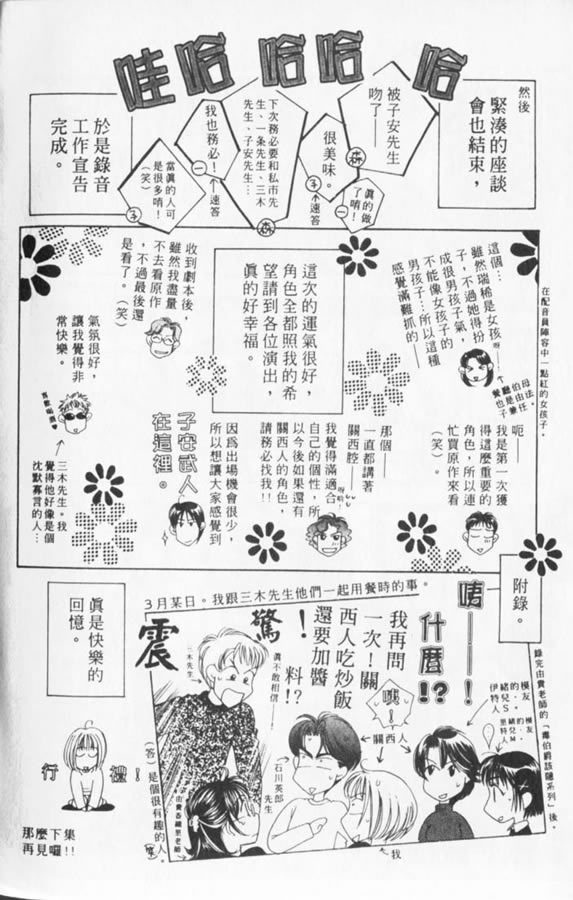 哇哈 哈哈 哈
然後
緊湊的座談
會也結束，
被子安先生
吻了——
森
真的做
了唷！
一
很美味。
子
←速答
下次務必要和私市先
生、一条先生、三木
先生、子安先生…
森
我也務必！
一
←速答
當真的人可
是很多唷！
（笑）
子
於是錄音
工作宣告
完成。
在配音員陣容中一點紅的女孩子。
這個…
雖然瑞稀是女孩呀——
子，不過她得扮
成很男孩子氣，
不能像女孩子的
男孩子…所以這種
感覺滿難抓的——
這次的運氣很好，
角色全都照我的希
望請到各位演出，
真的好幸福。
收到劇本後，
雖然我盡量
不去看原作
，不過最後還
是看了。（笑）
氣氛很好，
讓我覺得非
常快樂。
三木先生。我
覺得他好像是個
沈默寡言的人…
呃——
我是第一次獲
得這麼重要的
角色，所以連
忙買原作來看
（笑）。
那個——
一直都講著
關西腔——
呀哈！
我覺得滿適合
自己的個性，所
以今後如果還有
關西人的角色，
請務必找我!!
因為出場機會很少，
所以想讓大家感覺到
子安武人
在這裡。
附錄。
錄完由貴老師的「毒伯爵該隱系列」後。
3月某日。我跟三木先生他們一起用餐時的事。
唷——！
什麼!?
我再問
一次！關
西人吃炒飯
還要加醬
料!?
咦！
關西人
驚！
真不敢相信——！
震
三木先生→
石川英郎
先生
↑由貴香織里老師
←我
（答）是個很有趣的人（笑）
真是快樂的
回憶。
行
禮！
那麼下集
再見囉!!